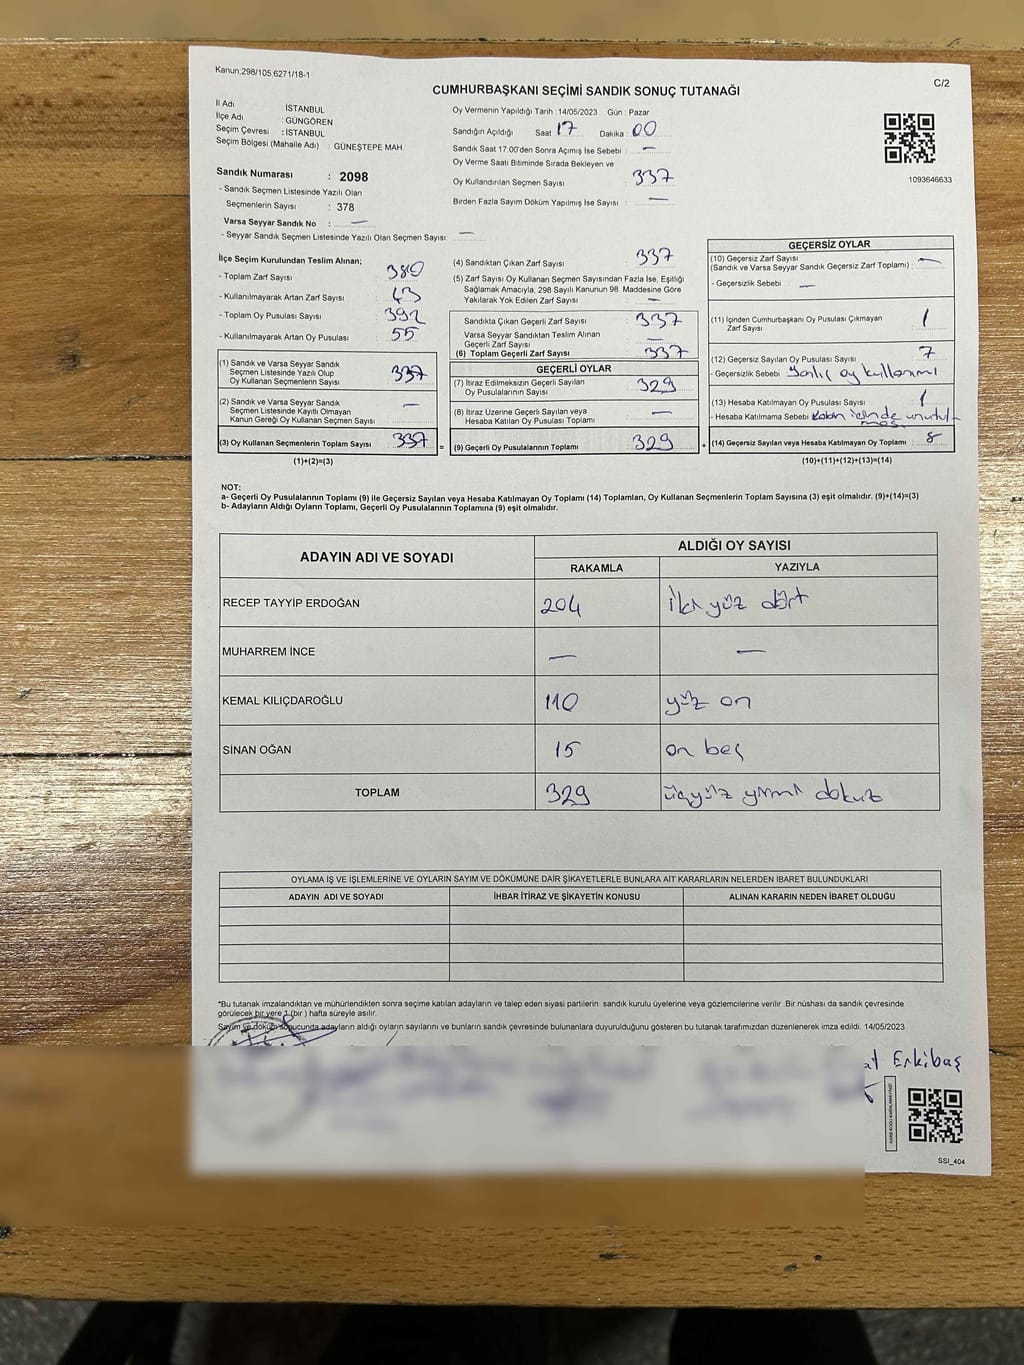 Kanun,298/105.6271/18-1
C/2
CUMHURBAŞKANI SEÇİMİ SANDIK SONUÇ TUTANAĞI
İl Adı : İSTANBUL
İlçe Adı : GÜNGÖREN
Seçim Çevresi : İSTANBUL
Seçim Bölgesi (Mahalle Adı) : GÜNEŞTEPE MAH.
Sandık Numarası : 2098
- Sandık Seçmen Listesinde Yazılı Olan
Seçmenlerin Sayısı : 378
Varsa Seyyar Sandık No : —
- Seyyar Sandık Seçmen Listesinde Yazılı Olan Seçmen Sayısı: —
Oy Vermenin Yapıldığı Tarih :14/05/2023 Gün : Pazar
Sandığın Açıldığı Saat 17 Dakika : 00
Sandık Saat 17.00'den Sonra Açımış İse Sebebi : —
Oy Verme Saati Bitiminde Sırada Bekleyen ve
Oy Kullandırılan Seçmen Sayısı 337
Birden Fazla Sayım Döküm Yapılmış İse Sayısı : —
1093646633
İlçe Seçim Kurulundan Teslim Alınan;
- Toplam Zarf Sayısı : 380
- Kullanılmayarak Artan Zarf Sayısı : 43
- Toplam Oy Pusulası Sayısı : 392
- Kullanılmayarak Artan Oy Pusulası : 55
(1) Sandık ve Varsa Seyyar Sandık
Seçmen Listesinde Yazılı Olup
Oy Kullanan Seçmenlerin Sayısı : 337
(2) Sandık ve Varsa Seyyar Sandık
Seçmen Listesinde Kayıtlı Olmayan
Kanun Gereği Oy Kullanan Seçmen Sayısı : —
(3) Oy Kullanan Seçmenlerin Toplam Sayısı : 337
(1)+(2)=(3)
(4) Sandıktan Çıkan Zarf Sayısı : 337
(5) Zarf Sayısı Oy Kullanan Seçmen Sayısından Fazla İse, Eşitliği
Sağlamak Amacıyla, 298 Sayılı Kanunun 98. Maddesine Göre
Yakılarak Yok Edilen Zarf Sayısı : —
Sandıkta Çıkan Geçerli Zarf Sayısı : 337
Varsa Seyyar Sandıktan Teslim Alınan
Geçerli Zarf Sayısı : —
(6) Toplam Geçerli Zarf Sayısı : 337
GEÇERLİ OYLAR
(7) İtiraz Edilmeksizin Geçerli Sayılan
Oy Pusulalarının Sayısı : 329
(8) İtiraz Üzerine Geçerli Sayılan veya
Hesaba Katılan Oy Pusulası Toplamı : —
= (9) Geçerli Oy Pusulalarının Toplamı : 329
GEÇERSİZ OYLAR
(10) Geçersiz Zarf Sayısı
(Sandık ve Varsa Seyyar Sandık Geçersiz Zarf Toplamı) : —
- Geçersizlik Sebebi : —
(11) İçinden Cumhurbaşkanı Oy Pusulası Çıkmayan
Zarf Sayısı : 1
(12) Geçersiz Sayılan Oy Pusulası Sayısı : 7
- Geçersizlik Sebebi : Yanlış oy kullanımı
(13) Hesaba Katılmayan Oy Pusulası Sayısı : 1
- Hesaba Katılmama Sebebi : kabin içinde unutul-
muş.
+ (14) Geçersiz Sayılan veya Hesaba Katılmayan Oy Toplamı : 8
(10)+(11)+(12)+(13)=(14)
NOT:
a- Geçerli Oy Pusulalarının Toplamı (9) ile Geçersiz Sayılan veya Hesaba Katılmayan Oy Toplamı (14) Toplamları, Oy Kullanan Seçmenlerin Toplam Sayısına (3) eşit olmalıdır. (9)+(14)=(3)
b- Adayların Aldığı Oyların Toplamı, Geçerli Oy Pusulalarının Toplamına (9) eşit olmalıdır.
ADAYIN ADI VE SOYADI
ALDIĞI OY SAYISI
RAKAMLA YAZIYLA
RECEP TAYYİP ERDOĞAN 204 İki yüz dört
MUHARREM İNCE — —
KEMAL KILIÇDAROĞLU 110 yüz on
SİNAN OĞAN 15 on beş
TOPLAM 329 üçyüz yirmi dokuz
OYLAMA İŞ VE İŞLEMLERİNE VE OYLARIN SAYIM VE DÖKÜMÜNE DAİR ŞİKAYETLERLE BUNLARA AİT KARARLARIN NELERDEN İBARET BULUNDUKLARI
ADAYIN ADI VE SOYADI İHBAR İTİRAZ VE ŞİKAYETİN KONUSU ALINAN KARARIN NEDEN İBARET OLDUĞU
*Bu tutanak imzalandıktan ve mühürlendikten sonra seçime katılan adayların ve talep eden siyasi partilerin sandık kurulu üyelerine veya gözlemcilerine verilir. Bir nüshası da sandık çevresinde
görülecek bir yere 1 (bir ) hafta süreyle asılır.
Sayım ve döküm sonucunda adayların aldığı oyların sayılarını ve bunların sandık çevresinde bulunanlara duyurulduğunu gösteren bu tutanak tarafımızdan düzenlenerek imza edildi. 14/05/2023
at Erkibaş
KARE KODU KARALAMAYINIZ!
SSI_404